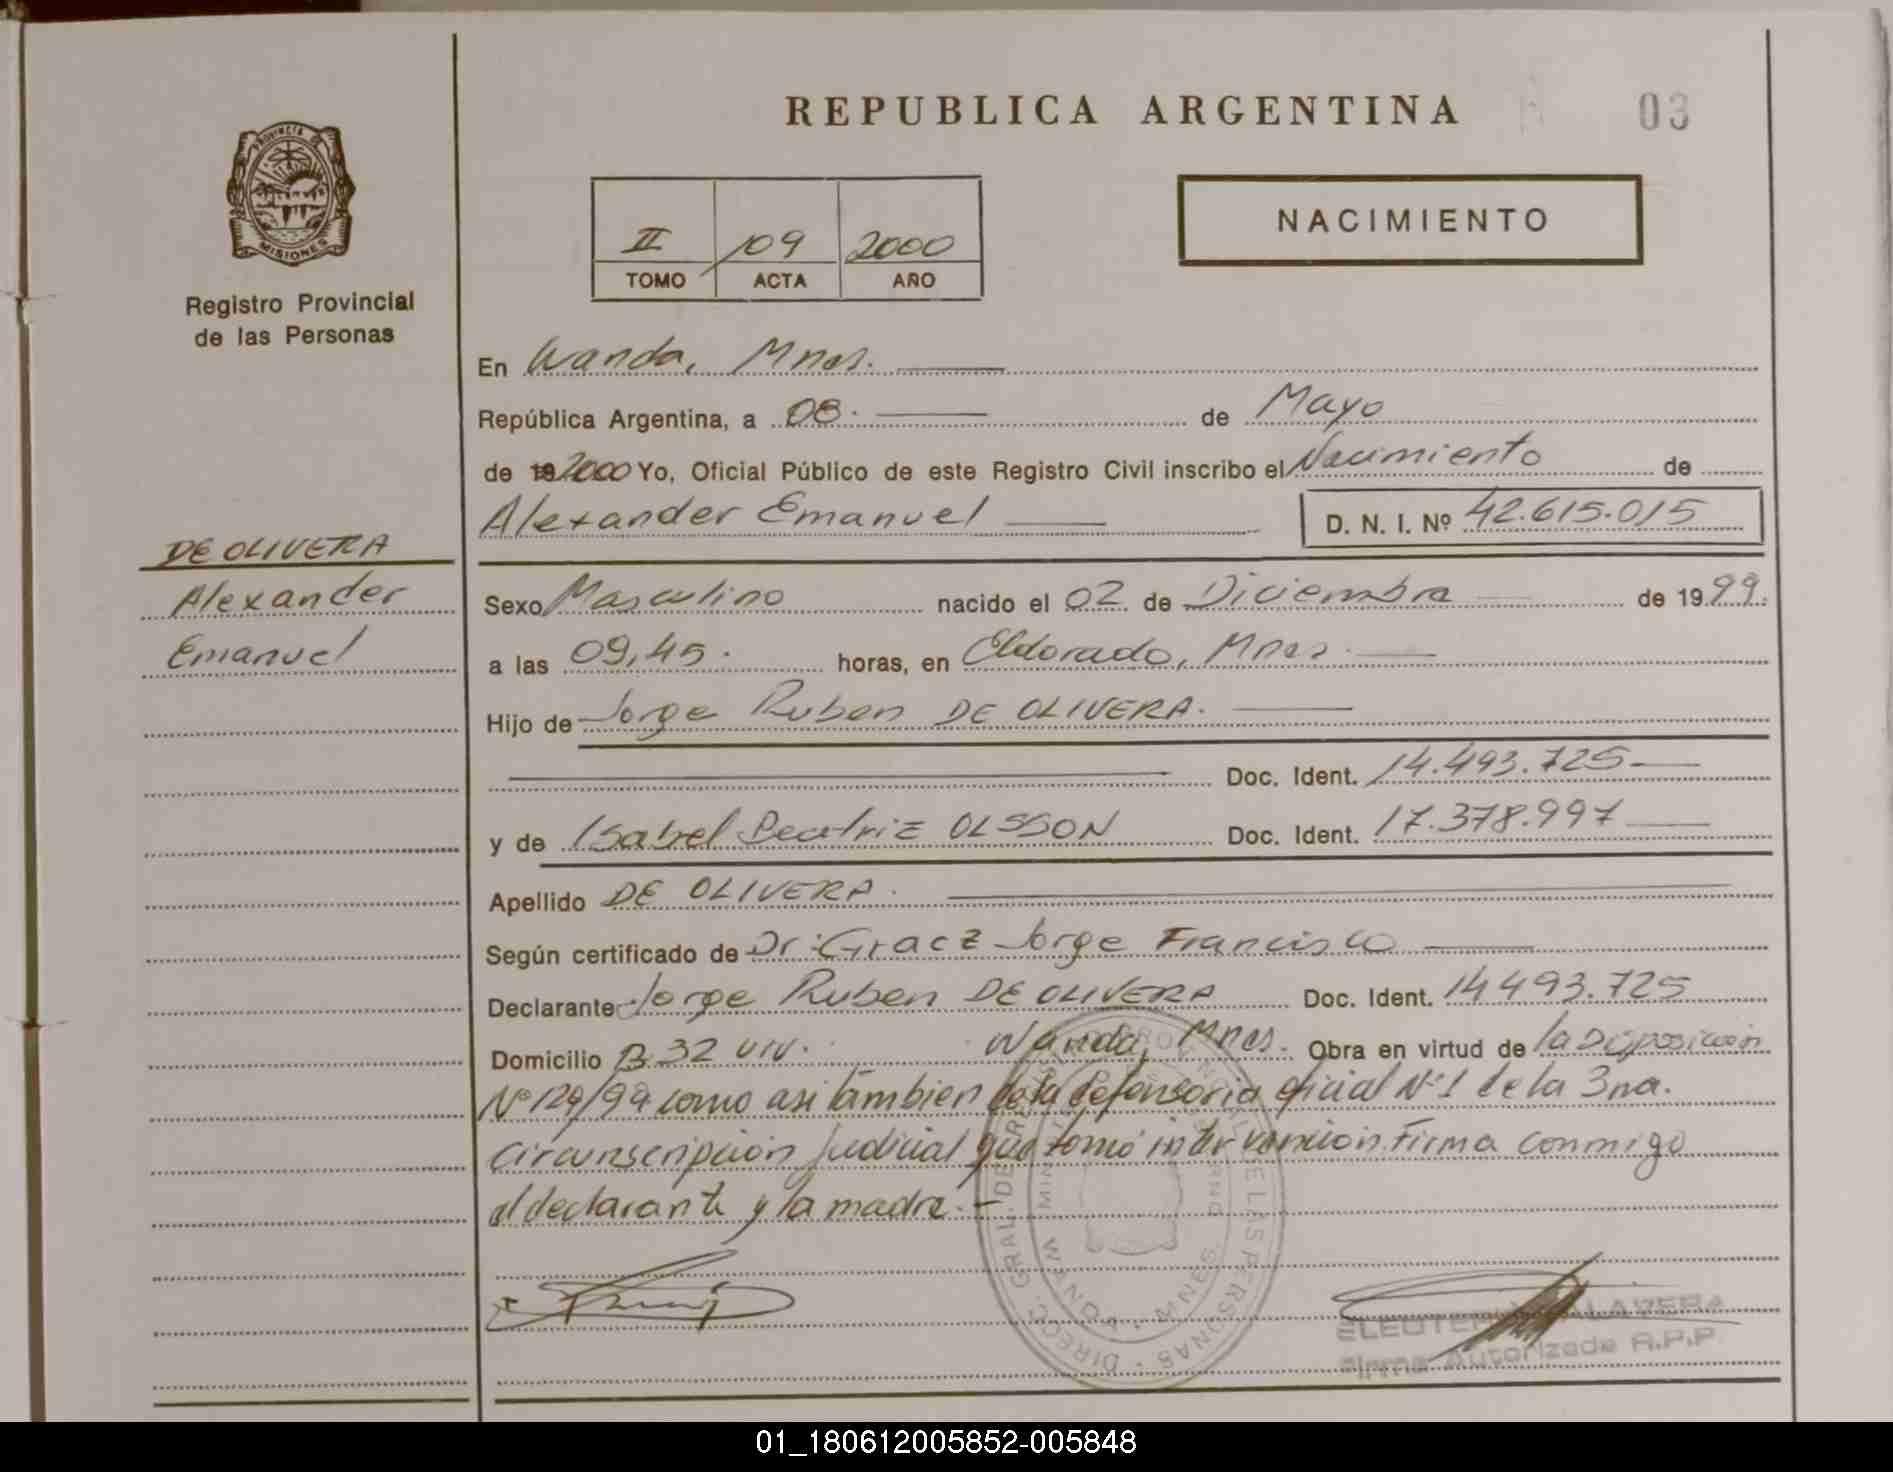 REPUBLICA ARGENTINA
03
PROVINCIA DE
MISIONES
Registro Provincial
de las Personas
II 109 2000
TOMO ACTA AÑO
NACIMIENTO
En Wanda, Mnes.
República Argentina, a 08. de Mayo
de 19 2000 Yo, Oficial Público de este Registro Civil inscribo el Nacimiento de
Alexander Emanuel D. N. I. Nº 42.615.015
DE OLIVERA
Alexander
Emanuel
Sexo Masculino nacido el 02 de Diciembre de 1999.
a las 09,45. horas, en Eldorado, Mnes.
Hijo de Jorge Ruben DE OLIVERA.
Doc. Ident. 14.493.725
y de Isabel Beatriz OLSSON Doc. Ident. 17.378.997
Apellido DE OLIVERA.
Según certificado de Dr: Gracz Jorge Francisco
Declarante Jorge Ruben DE OLIVERA Doc. Ident. 14493.725
Domicilio B. 32 viv. Wanda, Mnes. Obra en virtud de la Disposición
Nº 129/99 como asi tambien de la defensoria oficial Nº 1 de la 3ra.
circunscripción judicial que tomó intervención. Firma conmigo
el declarante y la madre.-
Firma Autorizada R.P.P.
01_180612005852-005848